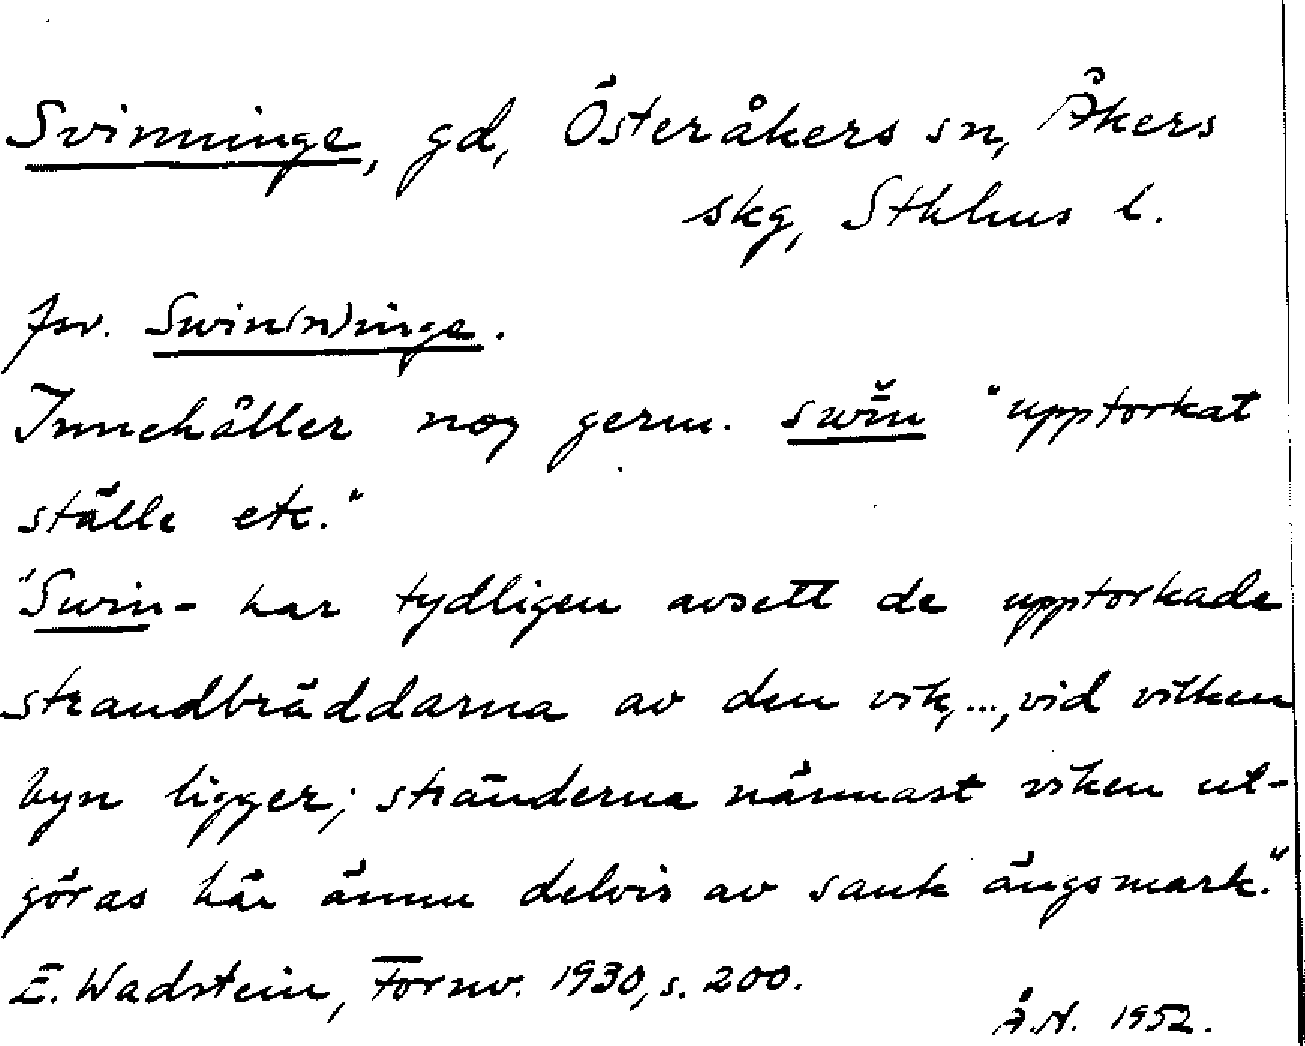 Svinninge, gd, Österåkers sn, Åkers
skg, Sthlms l.
fsv. Swin(n)inge.
Innehåller nog germ. swĭn "upptorkat
ställe etc."
"Swin- har tydligen avsett de upptorkade
strandbräddarna av den vik, ..., vid vilken
byn ligger; stränderna närmast viken ut-
göras här ännu delvis av sank ängsmark."
E. Wadstein, Fornv. 1930, s. 200.
Å.N. 1952.